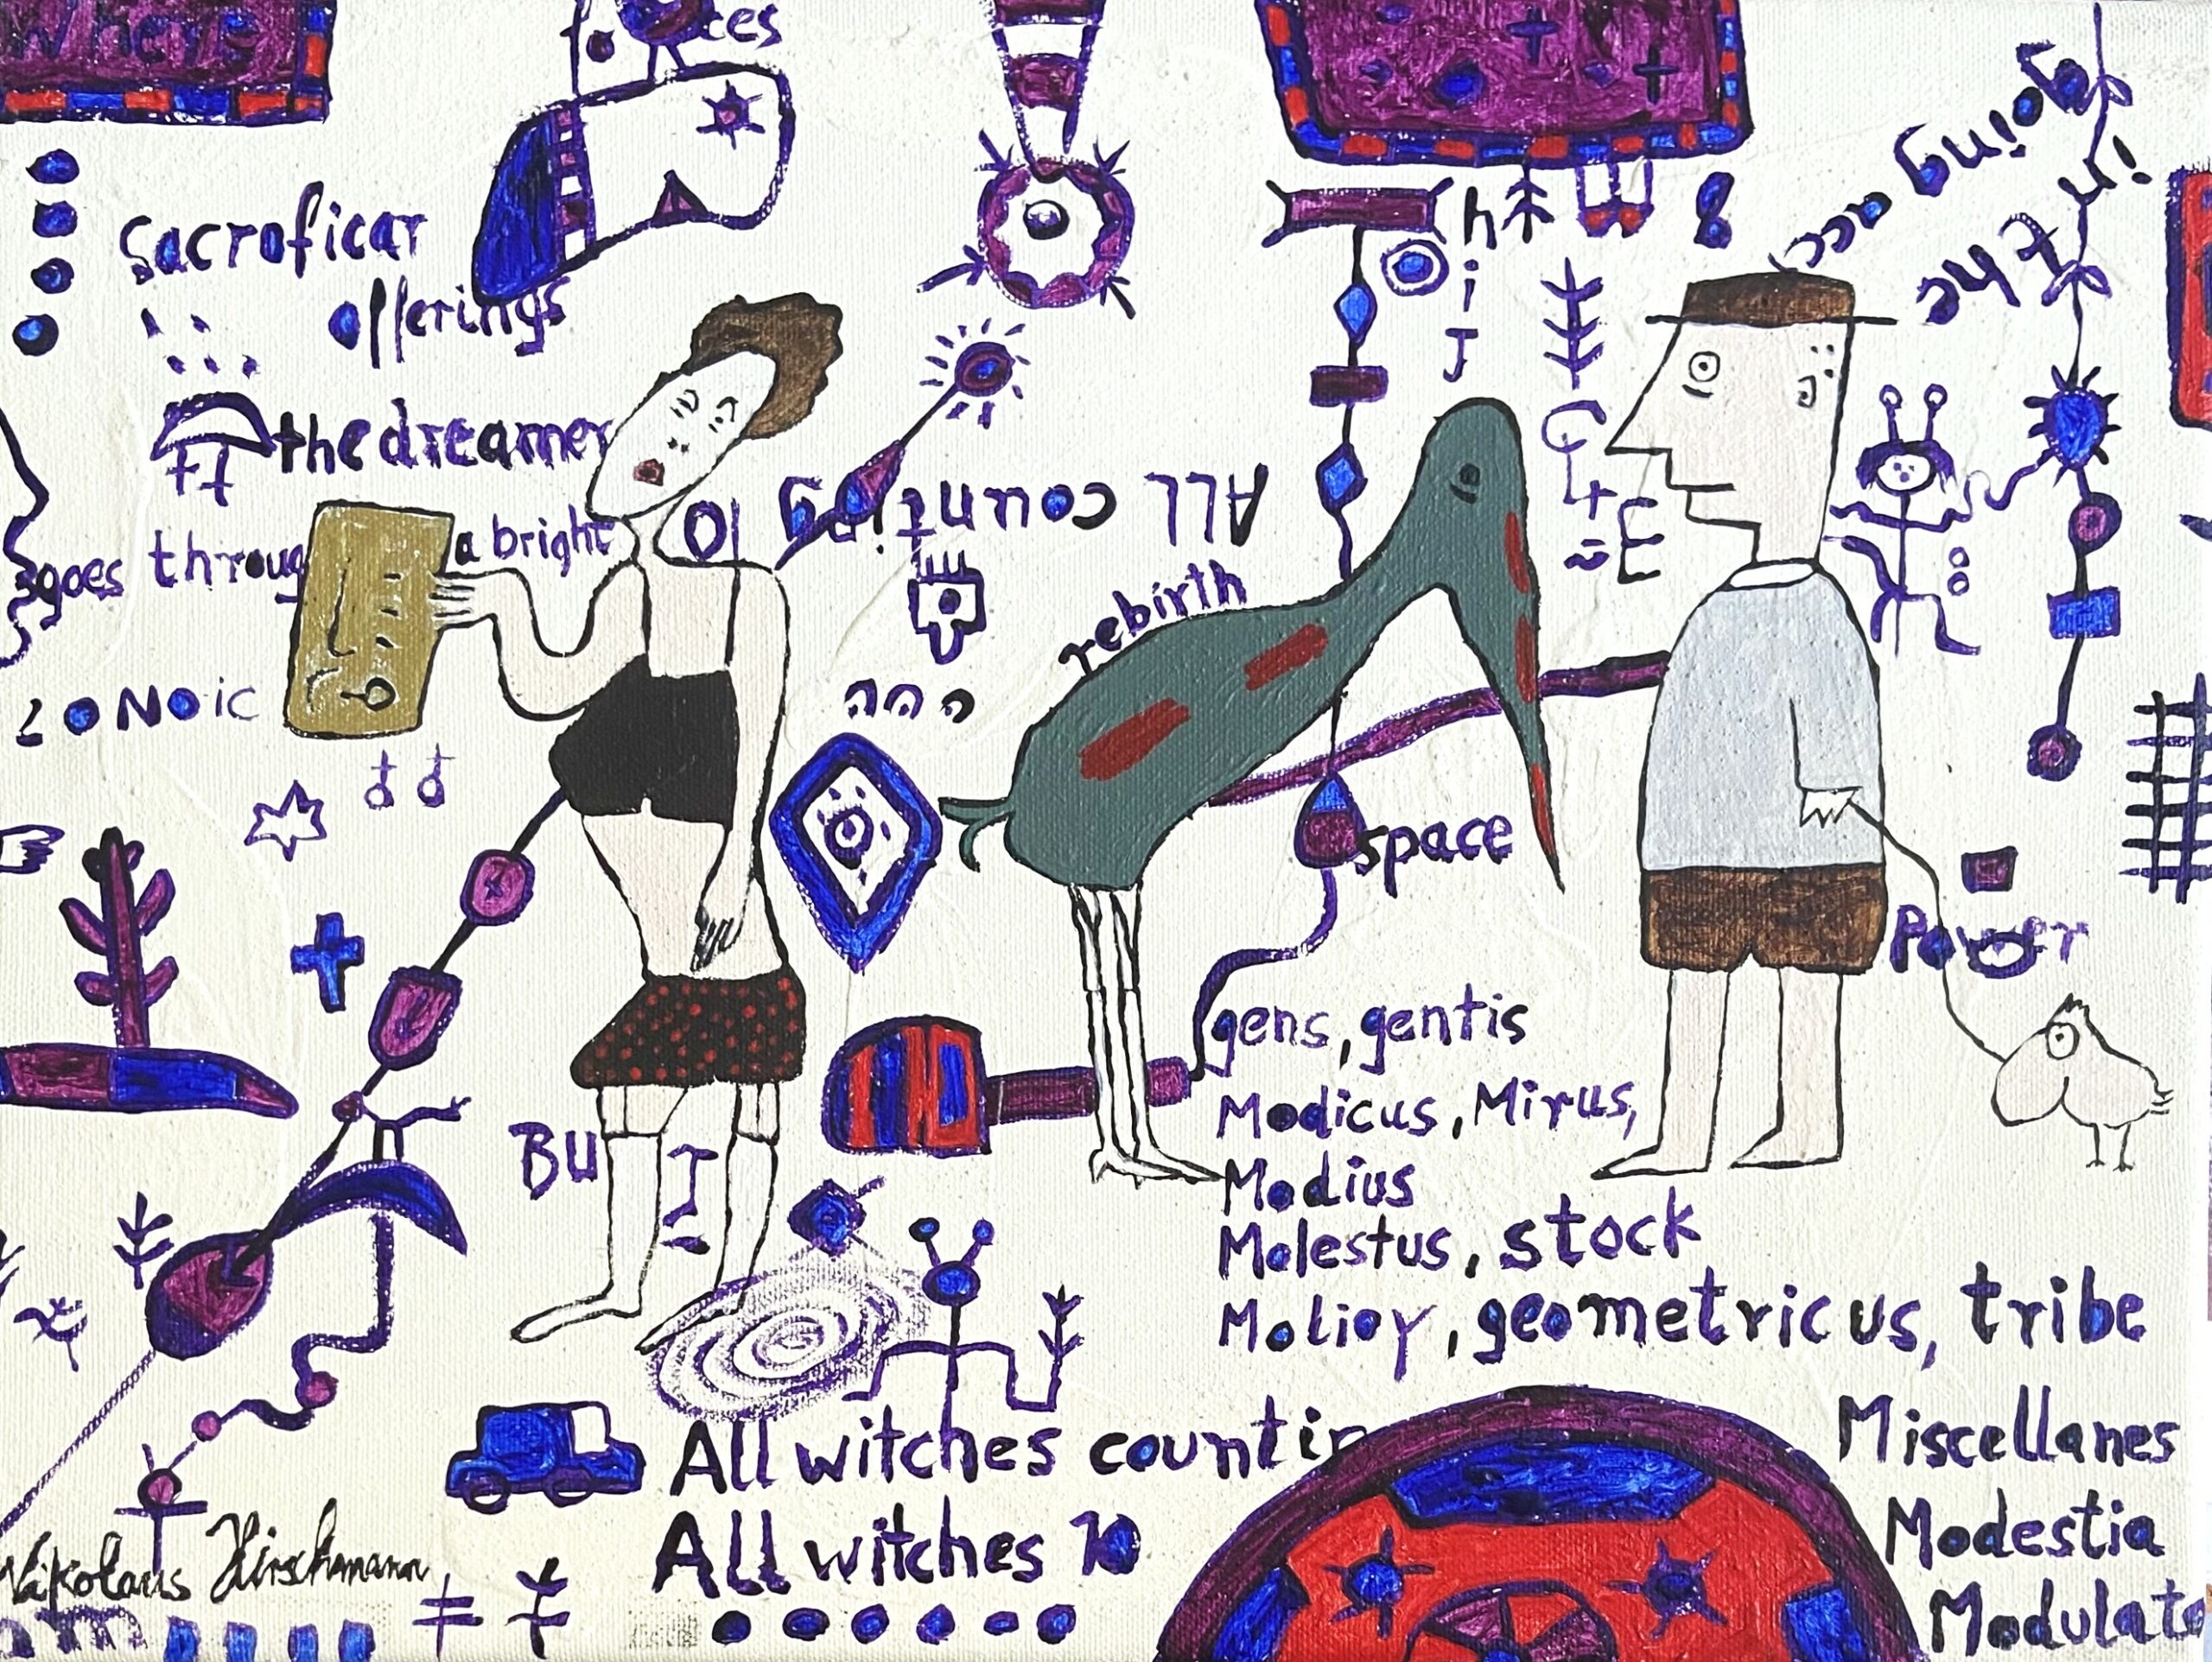 Where
ces
going acc
in the
sacroficar
offerings
h
i
J
8
the dreamer
ALL counting
goes throug a bright
rebirth
NOic
space
Power
gens, gentis
Modicus, Mirus,
Modius
BU
Molestus, stock
Molioy, geometricus, tribe
Miscellanes
All witches countin
Modestia
All witches 10
Nikolaus Hirschmann
Modulato